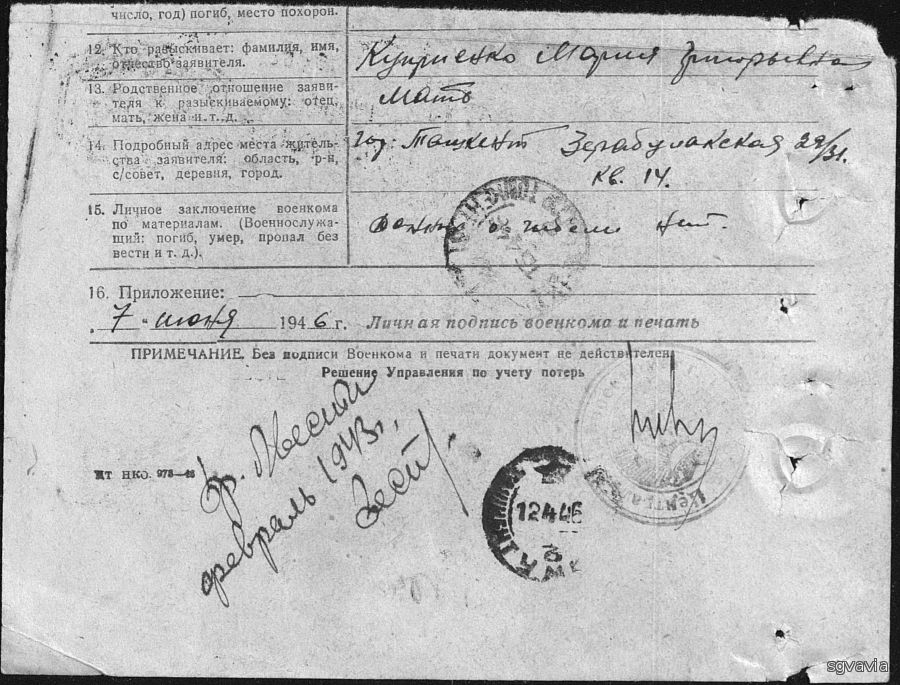 число, год) погиб, место похорон.
12. Кто разыскивает: фамилия, имя, отчество заявителя.
Куприенко Мария Григорьевна
13. Родственное отношение заявителя к разыскиваемому: отец, мать, жена и т. д.
Мать
14. Подробный адрес места жительства заявителя: область, р-н, с/совет, деревня, город.
гор. Ташкент Зерабулакская 29/31.
кв. 14.
15. Личное заключение военкома по материалам. (Военнослужащий: погиб, умер, пропал без вести и т. д.).
о гибели нет.
16. Приложение:
7 " июня 1946 г. Личная подпись военкома и печать
ПРИМЕЧАНИЕ. Без подписи Военкома и печати документ не действителен.
Решение Управления по учету потерь
февраль 1943 г.
НКО. 973—43
12446
2
sgvavia